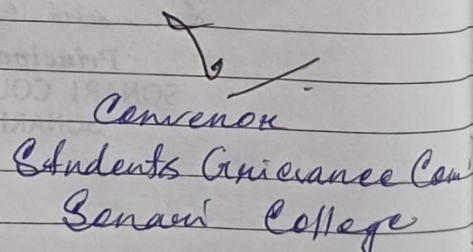 Convenor
Students Grievance Com
Sonari College